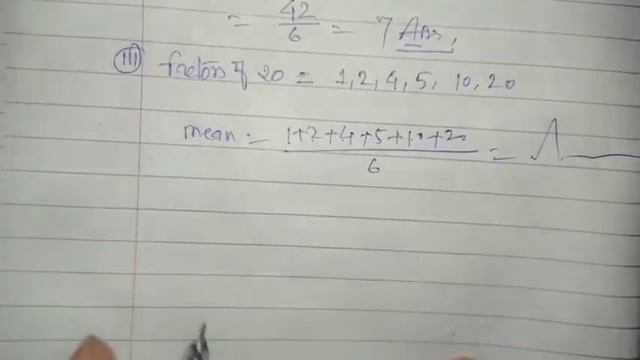 = 42/6 = 7 Ans,
(III) factors of 20 = 1, 2, 4, 5, 10, 20
mean = 1+2+4+5+10+20/6 =